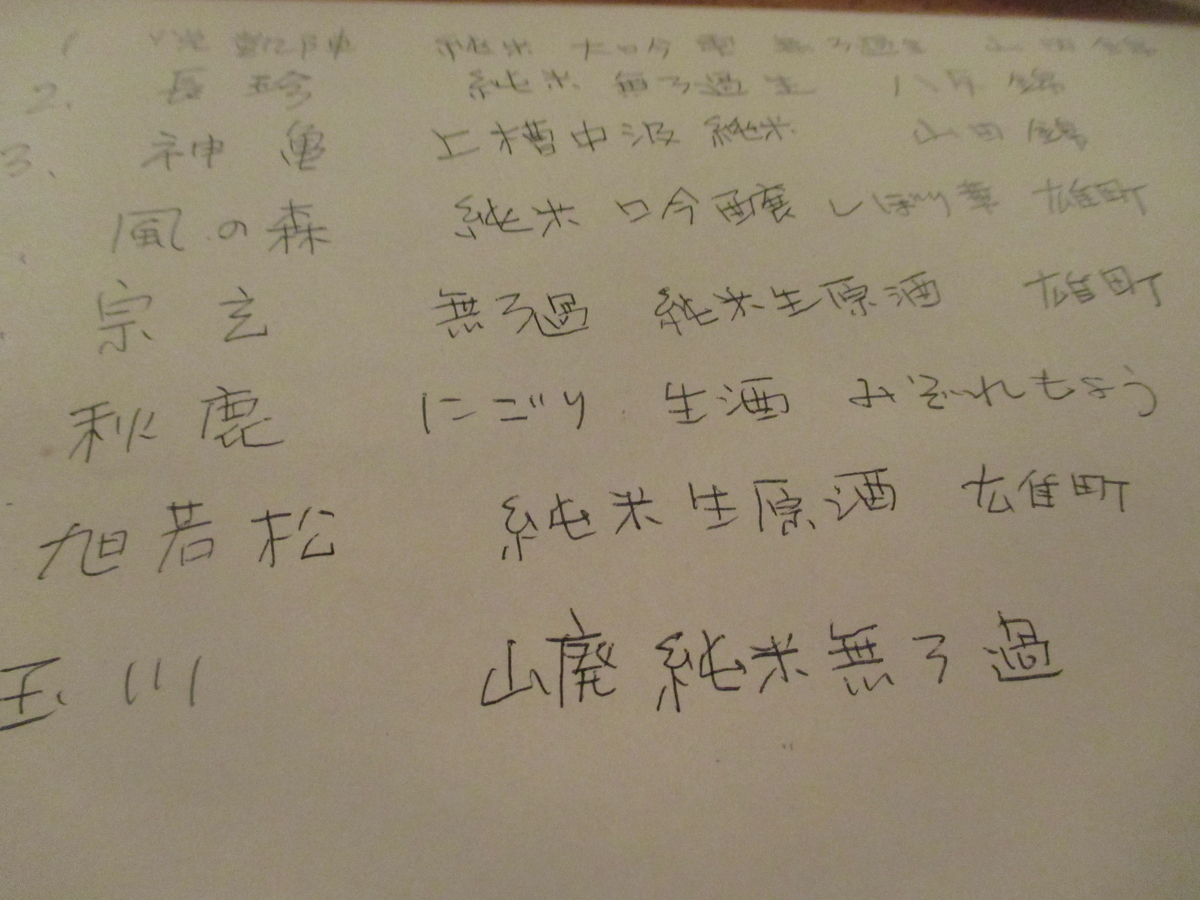 1 悦凱陣 純米 大吟醸 無ろ過生 山田錦
2. 長珍 純米 無ろ過生 八反錦
3. 神亀 上槽中汲 純米 山田錦
風の森 純米 吟醸 しぼり華 雄町
宗玄 無ろ過 純米生原酒 雄町
秋鹿 にごり 生酒 みぞれもよう
旭若松 純米生原酒 雄町
玉川 山廃純米無ろ過